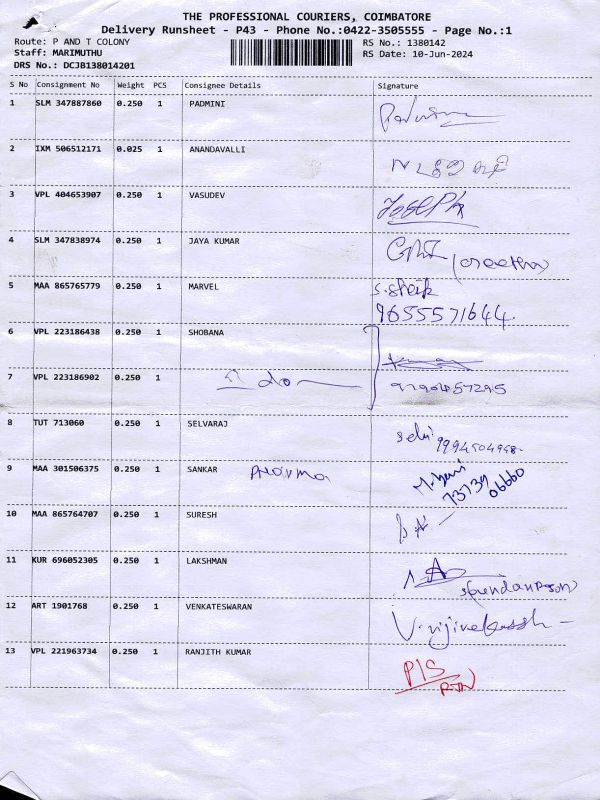 THE PROFESSIONAL COURIERS, COIMBATORE
Delivery Runsheet - P43 - Phone No.:0422-3505555 - Page No.:1
Route: P AND T COLONY
Staff: MARIMUTHU
DRS No.: DCJB138014201
RS No.: 1380142
RS Date: 10-Jun-2024
S No Consignment No Weight PCS Consignee Details Signature
1 SLM 347887860 0.250 1 PADMINI
2 IXM 506512171 0.025 1 ANANDAVALLI
3 VPL 404653907 0.250 1 VASUDEV Joseph
4 SLM 347838974 0.250 1 JAYA KUMAR
5 MAA 865765779 0.250 1 MARVEL
9655571644.
6 VPL 223186438 0.250 1 SHOBANA
7 VPL 223186902 0.250 1
8 TUT 713060 0.250 1 SELVARAJ
9 MAA 301506375 0.250 1 SANKAR
73739
06660
10 MAA 865764707 0.250 1 SURESH
11 KUR 696052305 0.250 1 LAKSHMAN
12 ART 1901768 0.250 1 VENKATESWARAN
13 VPL 221963734 0.250 1 RANJITH KUMAR P/S